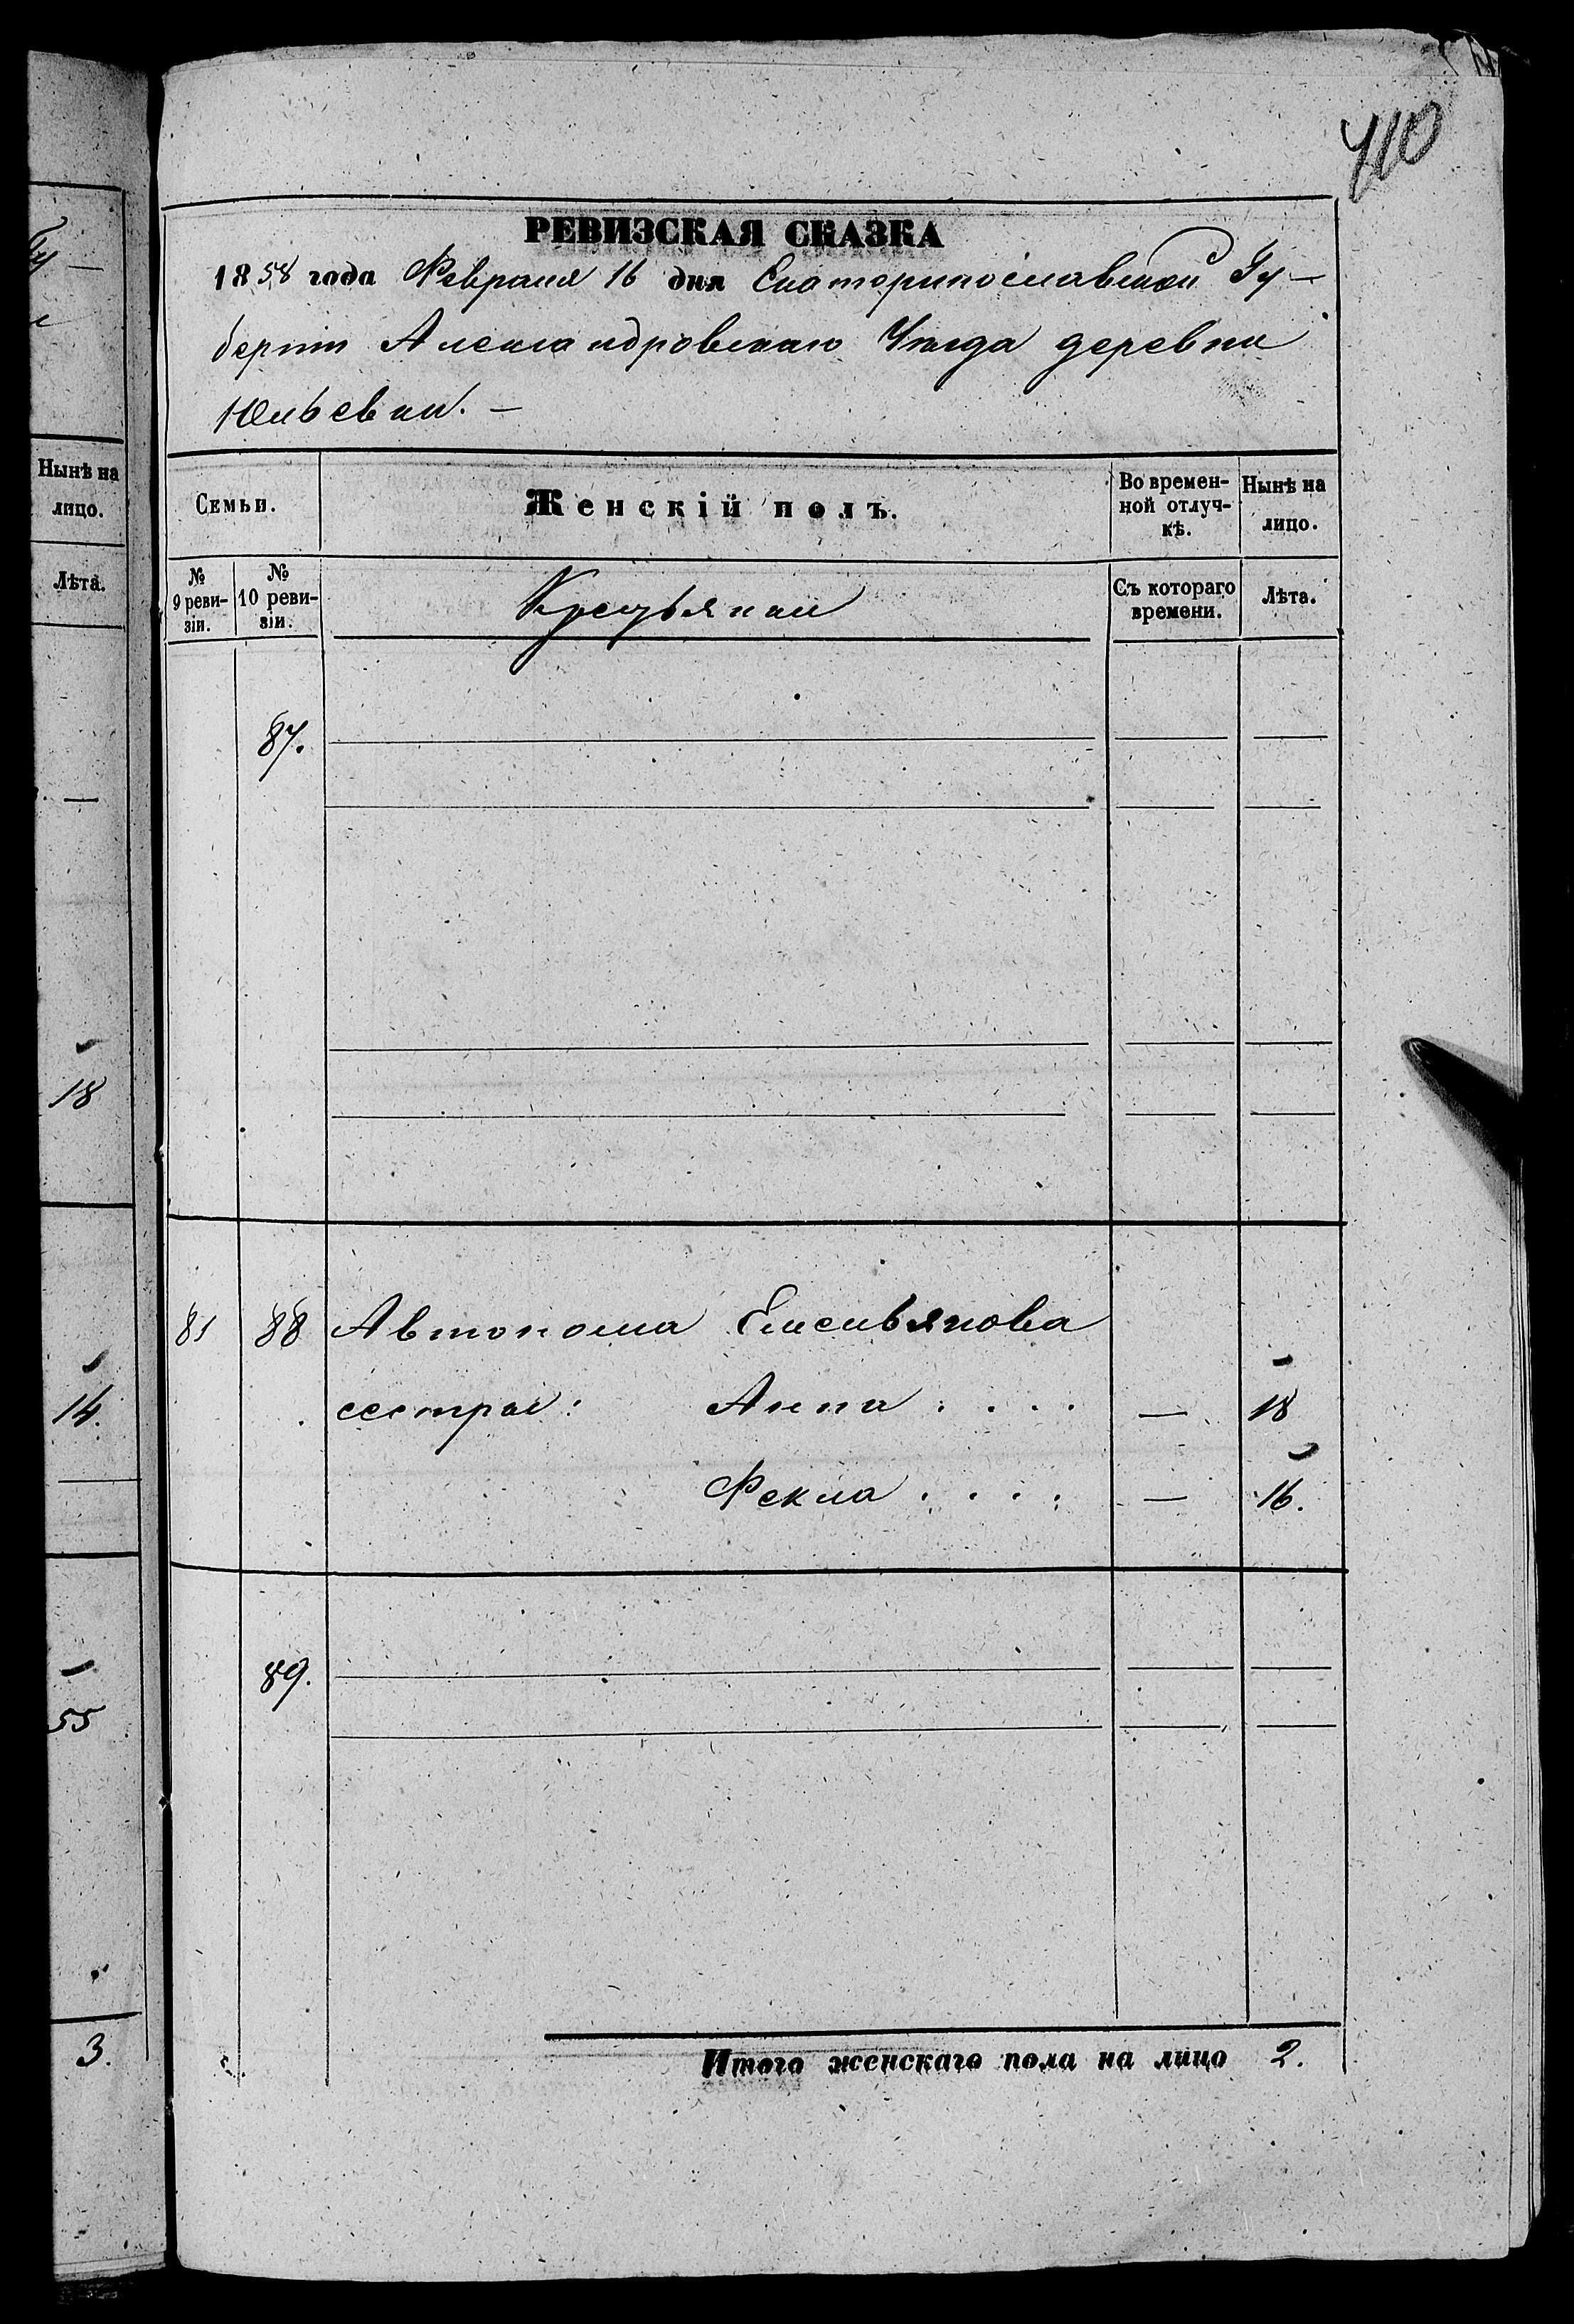 410
Ту
Нынѣ на
лицо.
Лѣта.
18
14.
55
3.
РЕВИЗСКАЯ СКАЗКА
1858 года Февраля 16 дня Екатеринославской Гу-
берніи Александровскаго Уѣзда деревни
Юльевки. —
Семьи.
Женскій полъ.
Во времен-
ной отлуч-
кѣ.
Нынѣ на
лицо.
№
9 реви-
зіи.
№
10 реви-
зіи.
Крестьянки
Съ котораго
времени.
Лѣта.
87.
81 88 Автонома Емельянова
сестры: Анна . . . . — 18
Фекла . . . . — 16.
89.
Итого женскаго пола на лицо 2.